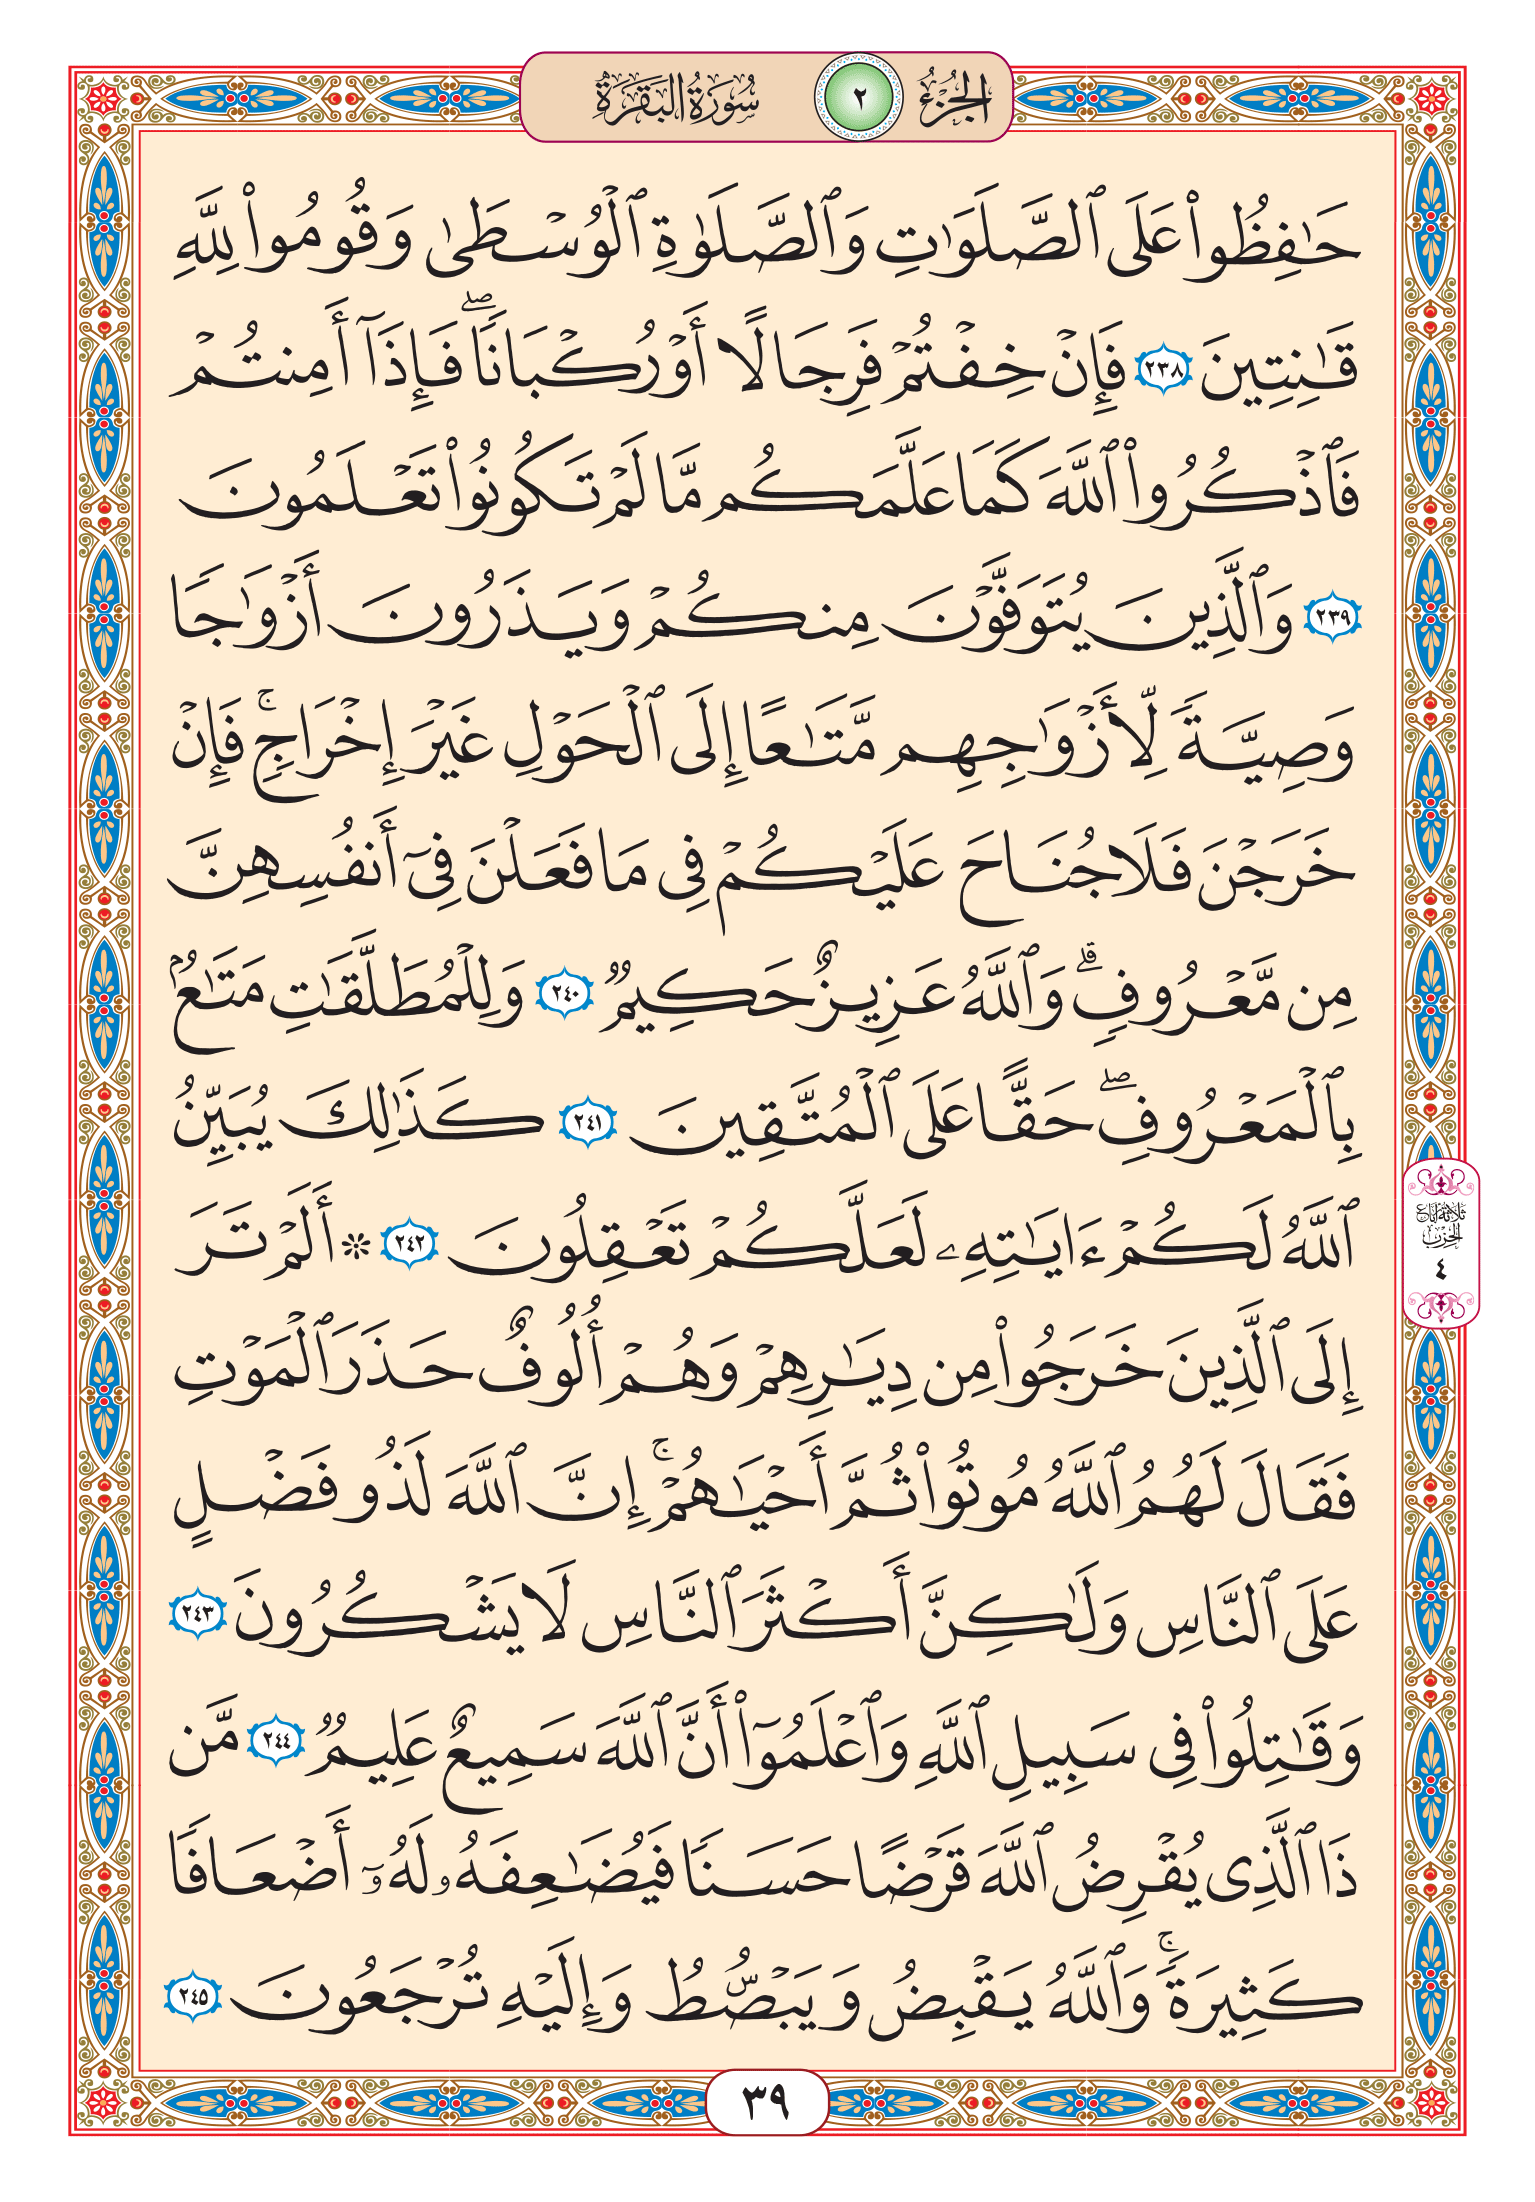 الجزء ٢ سورة البقرة
حَٰفِظُوا۟ عَلَى ٱلصَّلَوَٰتِ وَٱلصَّلَوٰةِ ٱلْوُسْطَىٰ وَقُومُوا۟ لِلَّهِ
قَٰنِتِينَ ٢٣٨ فَإِنْ خِفْتُمْ فَرِجَالًا أَوْ رُكْبَانًا ۖ فَإِذَآ أَمِنتُمْ
فَٱذْكُرُوا۟ ٱللَّهَ كَمَا عَلَّمَكُم مَّا لَمْ تَكُونُوا۟ تَعْلَمُونَ
٢٣٩ وَٱلَّذِينَ يُتَوَفَّوْنَ مِنكُمْ وَيَذَرُونَ أَزْوَٰجًا
وَصِيَّةً لِّأَزْوَٰجِهِم مَّتَٰعًا إِلَى ٱلْحَوْلِ غَيْرَ إِخْرَاجٍ ۚ فَإِنْ
خَرَجْنَ فَلَا جُنَاحَ عَلَيْكُمْ فِى مَا فَعَلْنَ فِىٓ أَنفُسِهِنَّ
مِن مَّعْرُوفٍ ۗ وَٱللَّهُ عَزِيزٌ حَكِيمٌ ٢٤٠ وَلِلْمُطَلَّقَٰتِ مَتَٰعٌۢ
بِٱلْمَعْرُوفِ ۖ حَقًّا عَلَى ٱلْمُتَّقِينَ ٢٤١ كَذَٰلِكَ يُبَيِّنُ
ٱللَّهُ لَكُمْ ءَايَٰتِهِۦ لَعَلَّكُمْ تَعْقِلُونَ ٢٤٢ ۞ أَلَمْ تَرَ
ثلاثة أرباع
الحزب
٤
إِلَى ٱلَّذِينَ خَرَجُوا۟ مِن دِيَٰرِهِمْ وَهُمْ أُلُوفٌ حَذَرَ ٱلْمَوْتِ
فَقَالَ لَهُمُ ٱللَّهُ مُوتُوا۟ ثُمَّ أَحْيَٰهُمْ ۚ إِنَّ ٱللَّهَ لَذُو فَضْلٍ
عَلَى ٱلنَّاسِ وَلَٰكِنَّ أَكْثَرَ ٱلنَّاسِ لَا يَشْكُرُونَ ٢٤٣
وَقَٰتِلُوا۟ فِى سَبِيلِ ٱللَّهِ وَٱعْلَمُوٓا۟ أَنَّ ٱللَّهَ سَمِيعٌ عَلِيمٌ ٢٤٤ مَّن
ذَا ٱلَّذِى يُقْرِضُ ٱللَّهَ قَرْضًا حَسَنًا فَيُضَٰعِفَهُۥ لَهُۥٓ أَضْعَافًا
كَثِيرَةً ۚ وَٱللَّهُ يَقْبِضُ وَيَبْصُۜطُ وَإِلَيْهِ تُرْجَعُونَ ٢٤٥
٣٩